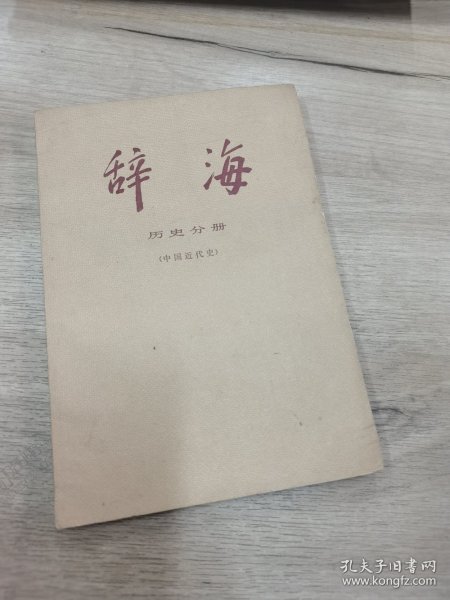 辞海
历史分册
(中国近代史)
孔夫子旧书网
www.kongfz.com